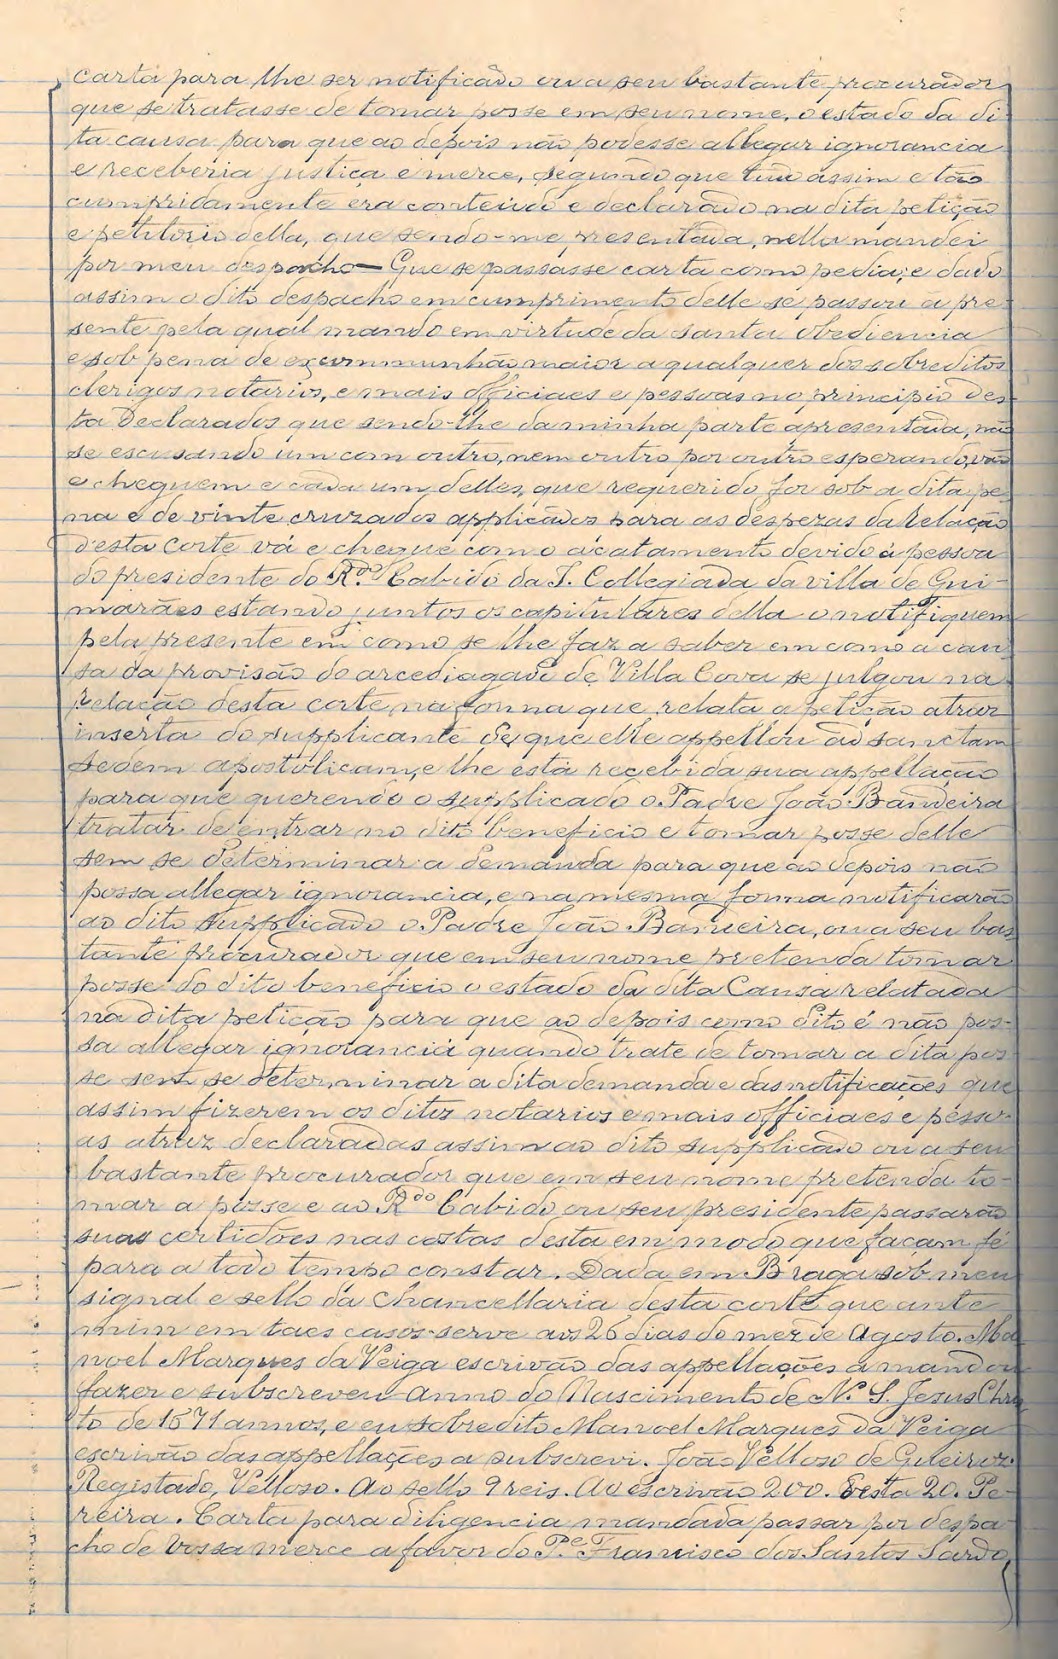 carta para lhe ser notificado ou a seu bastante procurador
que se tratasse de tomar posse em seu nome, o estado da di-
ta causa para que ao depois não podesse allegar ignorancia
e receberia justiça e merce, segundo que tudo assim e tão
cumpridamente era conteudo e declarado na dita petição
e petitorio della, que sendo-me presentada, nella mandei
por meu despacho — Que se passasse carta como pedia; e dado
assim o dito despacho em cumprimento delle se passou a pre-
sente pela qual mando em virtude da santa obediencia
e sob pena de excommunhão maior a qualquer dos sobreditos
clerigos notarios, e mais officiaes e pessoas no principio des-
ta declarados que sendo-lhe da minha parte apresentada, não
se escusando um com outro, nem outro por outro esperando, vão
e cheguem e cada um delles, que requerido for sob a dita pe-
na e de vinte cruzados applicados para as despezas da relação
d'esta corte vá e chegue com o acatamento devido á pessoa
do presidente do R.do Cabido da I. Collegiada da villa de Gui-
marães estando juntos os capitulares della o notifiquem
pela presente em como se lhe faz a saber em como a cau-
sa da provisão do arcediagado de Villa Cova se julgou na
relação desta corte na forma que relata a petição atraz
inserta do supplicante de que elle appellou ad sanctam
sedem apostolicam, e lhe está recebida sua appellação
para que querendo o supplicado o Padre João Bandeira
tratar de entrar no dito beneficio e tomar posse delle
sem se determinar a demanda para que ao depois não
possa allegar ignorancia, e na mesma forma notificarão
ao dito supplicado o Padre João Bandeira, ou a seu bas-
tante procurador que em seu nome pretenda tomar
posse do dito beneficio o estado da dita Causa relatada
na dita petição para que ao depois como dito é não pos-
sa allegar ignorancia quando trate de tomar a dita pos-
se sem se determinar a dita demanda e das notificações que
assim fizerem os ditos notarios e mais officiaes e pesso-
as atraz declaradas assim ao dito supplicado ou a seu
bastante procurador que em seu nome pretenda to-
mar a posse e ao R.do Cabido ou seu presidente passarão
suas certidões nas costas desta em modo que façam fé
para a todo tempo constar. Dada em Braga sob meu
signal e sello da chancellaria desta corte que ante
mim em taes casos serve aos 26 dias do mez de Agosto. Ma-
noel Marques da Veiga escrivão das appellações a mandou
fazer e subscreveu anno do Nascimento de N. S. Jesus Chris-
to de 1671 annos, e eu sobredito Manoel Marques da Veiga
escrivão das appellações a subscrevi. João Velloso de Gueiroz.
Registado, Velloso. Ao sello 9 reis. Ao escrivão 200. Desta 20. Pe-
reira. Carta para diligencia mandada passar por despa-
cho de Vossa merce a favor do P.e Francisco dos Santos Sardo,